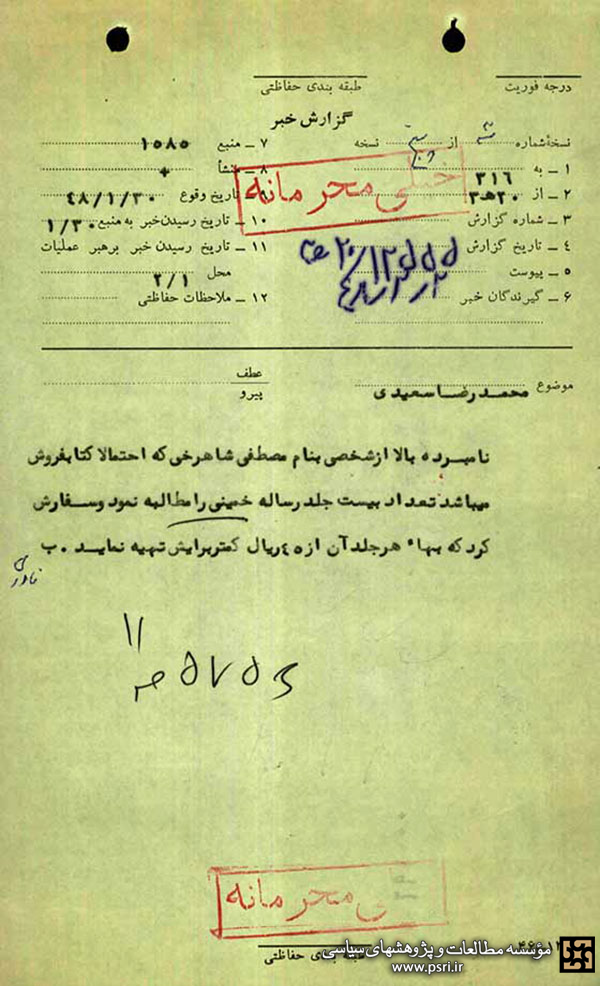 درجه فوریت
طبقه بندی حفاظتی
گزارش خبر
نسخهٔ شماره ۳ از پنج نسخه
۱ ــ به ۳۱۶
۲ ــ از ۲۰هـ۳
۳ ــ شماره گزارش
۴ ــ تاریخ گزارش
۵ ــ پیوست
۶ ــ گیرندگان خبر
۷ ــ منبع ۱۵۸۵
۸ ــ منشأ +
تاریخ وقوع ۴۸/۱/۳۰
۱۰ ــ تاریخ رسیدن خبر به منبع ۱/۳۰
۱۱ ــ تاریخ رسیدن خبر برهبر عملیات
محل ۲/۱
۱۲ ــ ملاحظات حفاظتی
خیلی محرمانه
موضوع محمدرضا سعیدی
عطف
پیرو
نامبرده بالا از شخصی بنام مصطفی شاهرخی که احتمالا کتابفروش
میباشد تعداد بیست جلد رساله خمینی را مطالبه نمود وسفارش
کرد که بهاء هرجلد آن از ۴۵ ریال کمتر برایش تهیه نماید . ب
نادری
خیلی محرمانه
طبقه بندی حفاظتی
مؤسسه مطالعات و پژوهشهای سیاسی
www.psri.ir